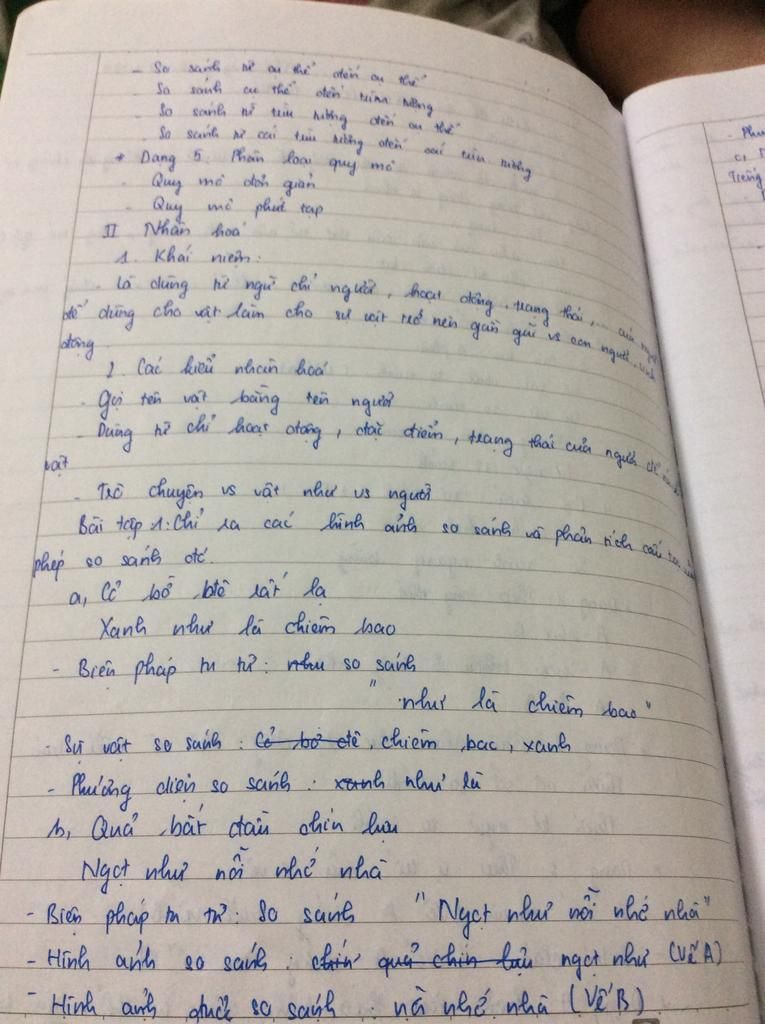 - So sánh từ cụ thể đến cụ thể
- So sánh cụ thể đến trừu tượng
- So sánh từ trừu tượng đến cụ thể
- So sánh từ cái trừu tượng đến cái trừu tượng
* Dạng 5: Phân loại quy mô
- Quy mô đơn giản
- Quy mô phức tạp
II Nhân hoá
1. Khái niệm:
- Là dùng từ ngữ chỉ người, hoạt động, trạng thái,... của người
để dùng cho vật làm cho sự vật trở nên gần gũi vs con người, sinh
động
2. Các kiểu nhân hoá
- Gọi tên vật bằng tên người
- Dùng từ chỉ hoạt động, đặc điểm, trạng thái của người để
vật
- Trò chuyện vs vật như vs người
Bài tập 1: Chỉ ra các hình ảnh so sánh và phân tích cấu tạo
phép so sánh đó.
a, Cỏ bờ đê rất lạ
Xanh như là chiêm bao
- Biện pháp tu từ: như so sánh
"như là chiêm bao"
- Sự vật so sánh: Cỏ bờ đê, chiêm bao, xanh
- Phương diện so sánh: xanh như là
b, Quả bắt đầu chín lựu
Ngọt như nỗi nhớ nhà
- Biện pháp tu từ: So sánh "Ngọt như nỗi nhớ nhà"
- Hình ảnh so sánh: chín quả chín ngọt như (Vế A)
- Hình ảnh được so sánh: nỗi nhớ nhà (Vế B)